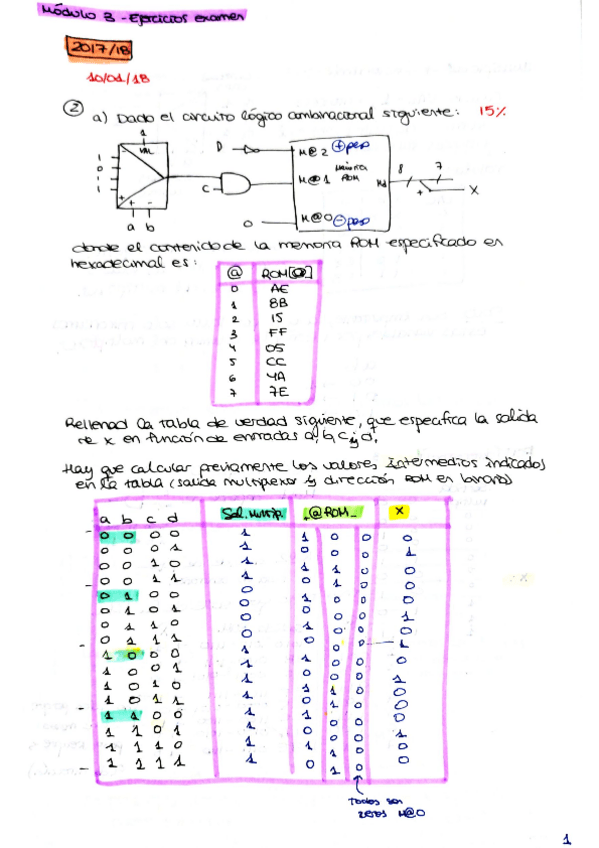 Módulo 3 - Ejercicios examen
2017/18
10/01/18
② a) Dado el circuito lógico combinacional siguiente: 15%
1
VAL
1
0
1
1
+ -
a b
D
C
0
M@2 ⊕ peso
M@1
ROM
M@0 ⊖ peso
Md
8 7
+
X
donde el contenido de la memoria ROM especificado en
hexadecimal es:
@ ROM[@]
0 AE
1 8B
2 15
3 FF
4 05
5 CC
6 4A
7 7E
Rellenad la tabla de verdad siguiente, que especifica la salida
de x en función de entradas a, b, c y d,
Hay que calcular previamente los valores intermedios indicados
en la tabla (salida multiplexor y dirección ROM en binario)
a b c d Sal. Multip. + @ROM - X
0 0 0 0 1 1 0 0 0
0 0 0 1 1 0 0 0 1
0 0 1 0 1 1 1 0 0
0 0 1 1 1 0 1 0 0
0 1 0 0 0 1 0 0 0
0 1 0 1 0 0 0 0 1
0 1 1 0 0 1 0 0 0
0 1 1 1 0 0 0 0 1
1 0 0 0 1 1 0 0 0
1 0 0 1 1 0 0 0 1
1 0 1 0 1 1 1 0 0
1 0 1 1 1 0 1 0 0
1 1 0 0 1 1 0 0 0
1 1 0 1 1 0 0 0 1
1 1 1 0 1 1 1 0 0
1 1 1 1 1 0 1 0 0
Todos son
zeros M@0
1